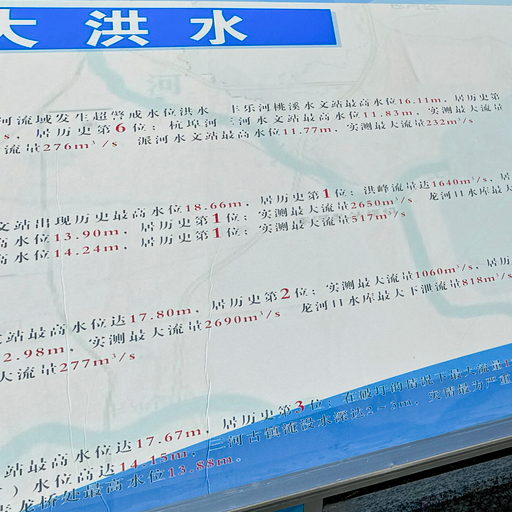 大洪水
河流域发生超警戒水位洪水 丰乐河桃溪水文站最高水位16.11m，居历史第
s，居历史第6位；杭埠河三河水文站最高水位11.83m，实测最大流量
流量276m³/s 派河水文站最高水位11.77m，实测最大流量232m³/s。
文站出现历史最高水位18.66m，居历史第1位；洪峰流量达1640m³/s，居
高水位13.90m，居历史第1位；实测最大流量2650m³/s 龙河口水库最大
高水位14.24m，居历史第1位；实测最大流量517m³/s
站最高水位达17.80m，居历史第2位；实测最大流量1060m³/s，居历
2.98m，实测最大流量2690m³/s 龙河口水库最大下泄流量818m³/s
大流量277m³/s
站最高水位达17.67m，居历史第3位；在破圩的情况下最大流量1
）水位高达14.15m，三河古镇淹没水深达2-3m，灾情最为严重
龙桥处最高水位13.88m。